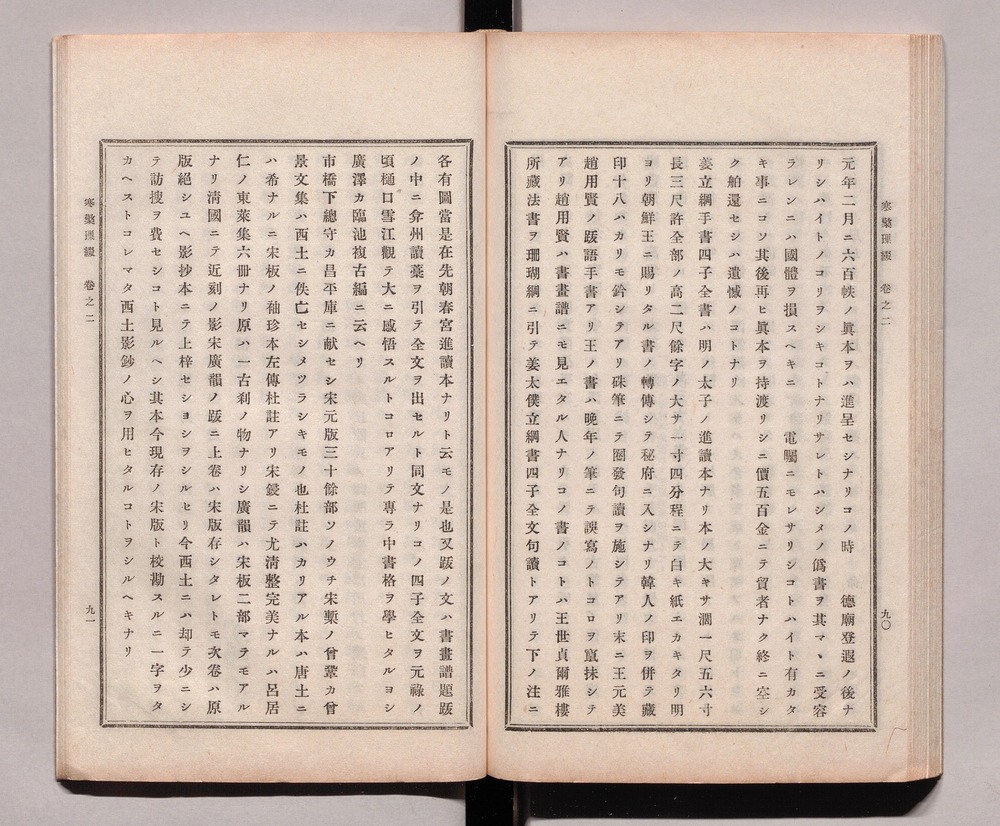 寒檠璅綴　卷之二
九〇
元年二月ニ六百帙ノ眞本ヲハ進呈セシナリコノ時　德廟登遐ノ後ナ
リシハイトノコリヲシキコトナリサレトハシメノ僞書ヲ其マヽニ受容
ラレンニハ國體ヲ損スヘキニ　電矚ニモレサリシコトハイト有カタ
キ事ニコソ其後再ヒ眞本ヲ持渡リシニ價五百金ニテ貿者ナク終ニ空シ
ク舶還セシハ遺憾ノコトナリ
姜立綱手書四子全書ハ明ノ太子ノ進讀本ナリ本ノ大キサ濶一尺五六寸
長三尺許全部ノ高二尺餘字ノ大サ一寸四分程ニテ白キ紙エカキタリ明
ヨリ朝鮮王ニ賜リタル書ノ轉傳シテ秘府ニ入シナリ韓人ノ印ヲ併テ藏
印十八ハカリモ鈐シテアリ硃筆ニテ圈發句讀ヲ施シテアリ末ニ王元美
趙用賢ノ跋語手書アリ王ノ書ハ晩年ノ筆ニテ誤寫ノトコロヲ竄抹シテ
アリ趙用賢ハ書畫譜ニモ見エタル人ナリコノ書ノコトハ王世貞爾雅樓
所藏法書ヲ珊瑚綱ニ引テ姜太僕立綱書四子全文句讀トアリテ下ノ注ニ
各有圖當是在先朝春宮進讀本ナリト云モノ是也又跋ノ文ハ書畫譜題跋
ノ中ニ弇州讀藁ヲ引テ全文ヲ出セルト同文ナリコノ四子全文ヲ元祿ノ
頃樋口雪江觀テ大ニ感悟スルトコロアリテ専ラ中書格ヲ學ヒタルヨシ
廣澤カ臨池複古編ニ云ヘリ
市橋下總守カ昌平庫ニ献セシ宋元版三十餘部ソノウチ宋槧ノ曾鞏カ曾
景文集ハ西土ニ佚亡セシメツラシキモノ也杜註ハカリアル本ハ唐土ニ
ハ希ナルニ宋板ノ袖珍本左傳杜註アリ宋鋟ニテ尤淸整完美ナルハ呂居
仁ノ東萊集六冊ナリ原ハ一古刹ノ物ナリシ廣韻ハ宋板二部マテモアル
ナリ淸國ニテ近刻ノ影宋廣韻ノ跋ニ上卷ハ宋版存シタレトモ次卷ハ原
版絕シユヘ影抄本ニテ上梓セシヨシヲシルセリ今西土ニハ却テ少ニシ
テ訪搜ヲ費セシコト見ルヘシ其本今現存ノ宋版ト校勘スルニ一字ヲタ
カヘストコレマタ西土影鈔ノ心ヲ用ヒタルコトヲシルヘキナリ
寒檠璅綴　卷之二
九一